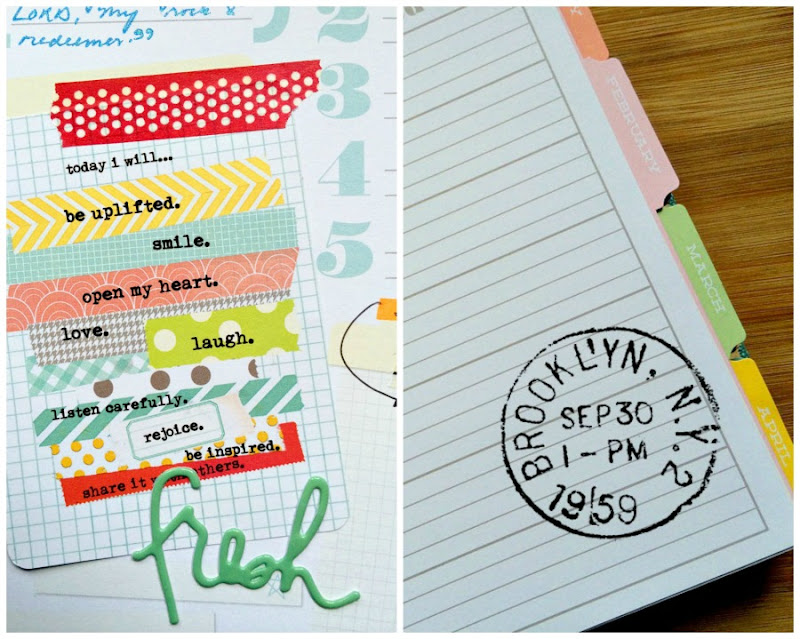 LORD, my rock &
redeemer."
2
3
4
5
today i will...
be uplifted.
smile.
open my heart.
love.
laugh.
listen carefully.
rejoice.
be inspired.
share it others.
fresh
FEBRUARY
MARCH
APRIL
BROOKLYN, N.Y. 2
SEP 30
1-PM
1959